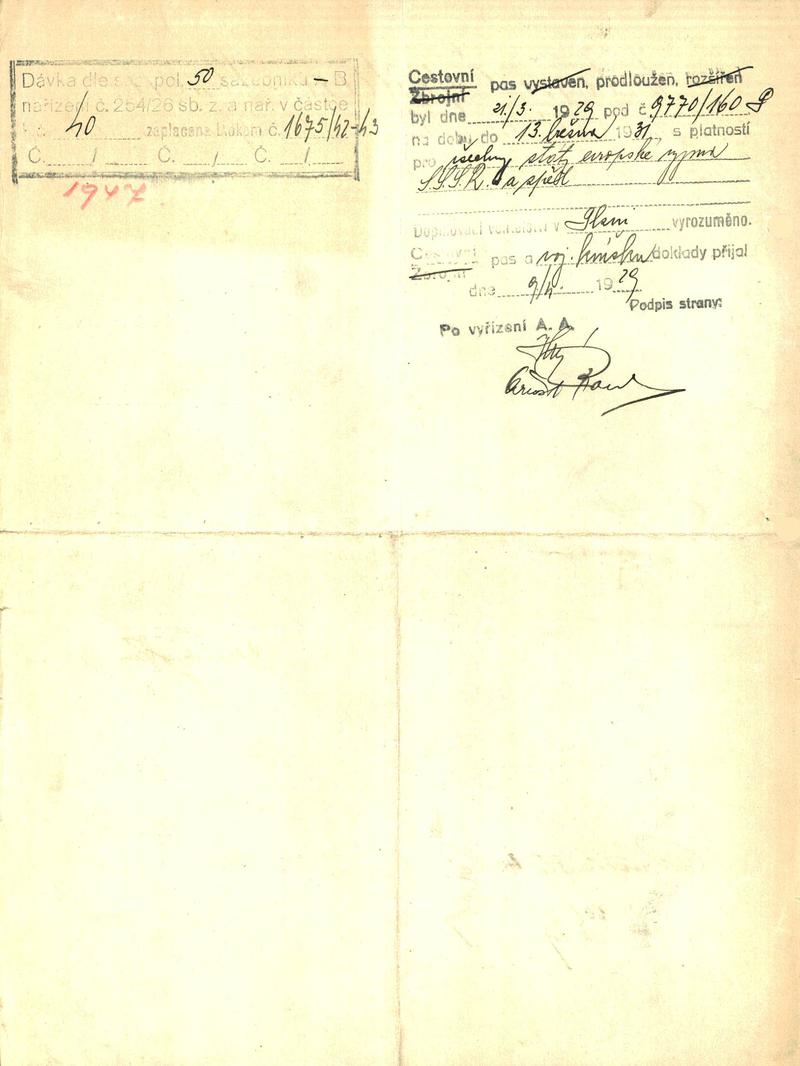 Dávka dle saz. pol. 50 sazebníku – B
nařízení č. 254/26 sb. z. a nař. v částce
Kč 40 zaplacena blokem č. 1675/42-43
Č. / Č. / Č. /
1947
Cestovní pas vystaven, prodloužen, rozšířen
Zbrojní
byl dne 21/3. 1929 pod č. 9770/160 P
na dobu do 13. března 1931, s platností
pro všechny státy evropské vyjma
S.S.S.R. a zpět
Doplňovací velitelství v Plzni vyrozuměno.
Cestovní pas a voj. knížku doklady přijal
Zbrojní
dne 9/4. 1929
Podpis strany:
Po vyřízení A. A.
Arnošt